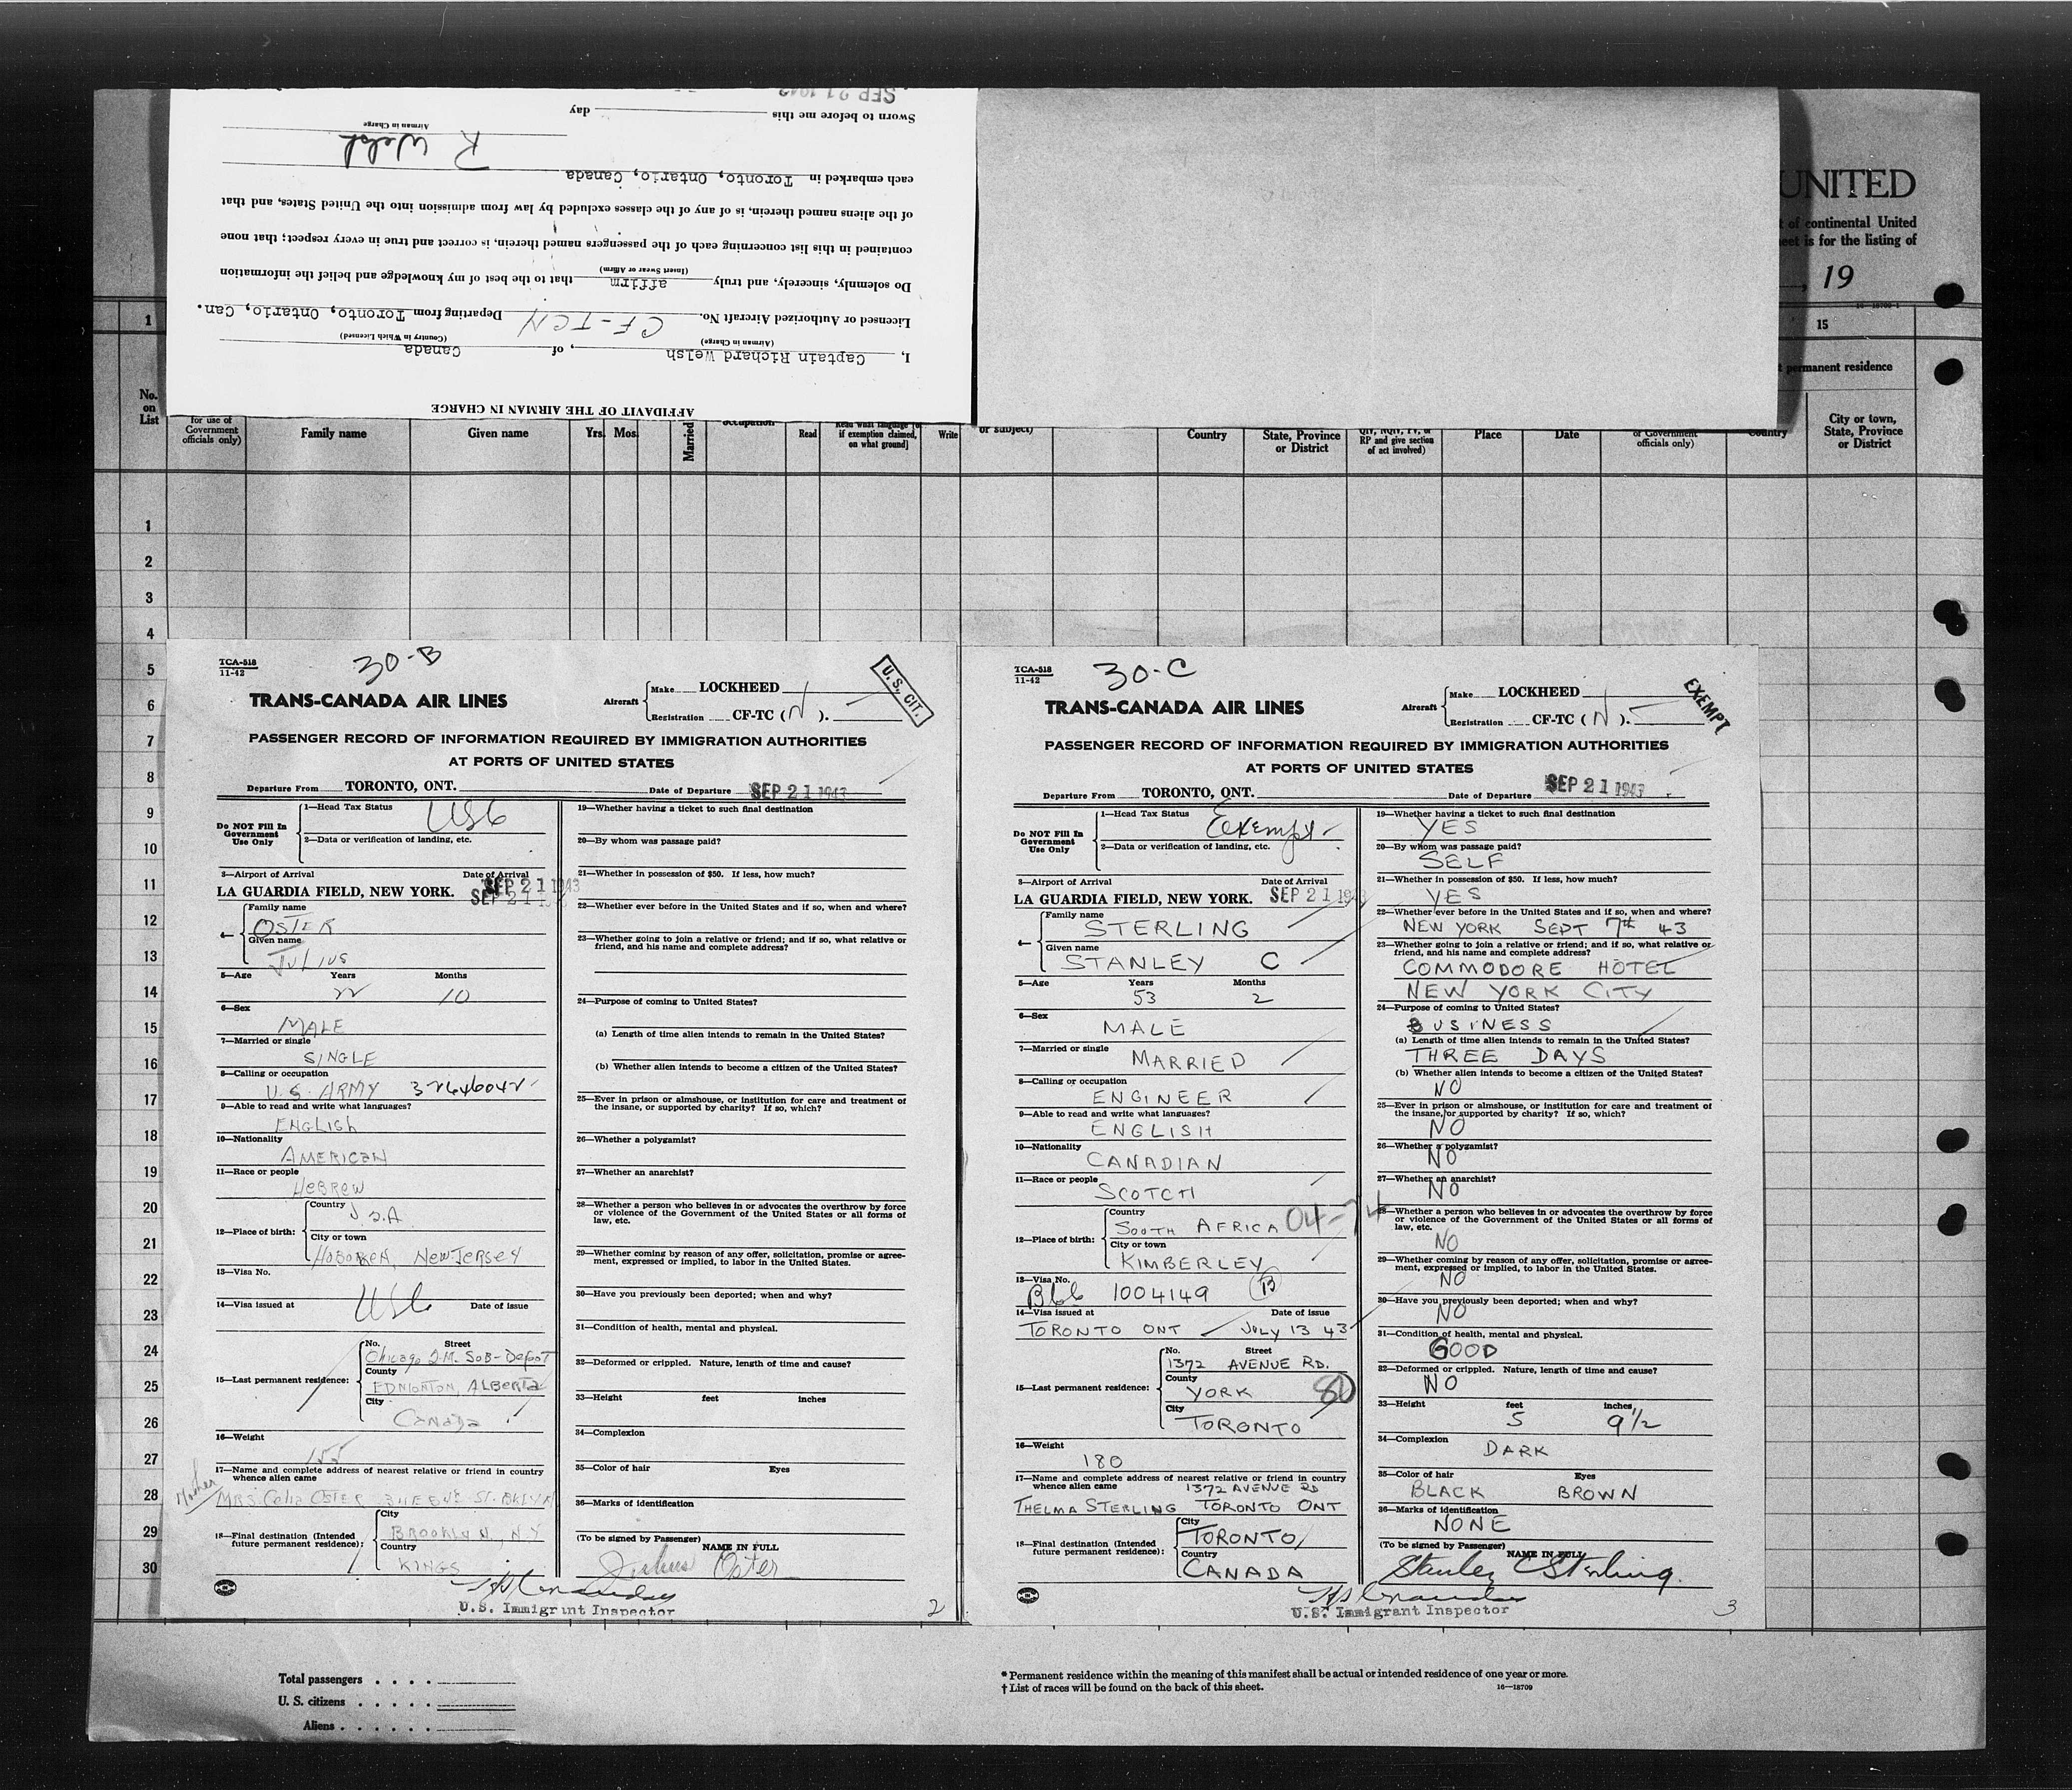 SEP 21 1943
Sworn to before me this day
Airman in Charge
R Welsh
each embarked in Toronto, Ontario, Canada
of the aliens named therein, is of any of the classes excluded by law from admission into the United States, and that
contained in this list concerning each of the passengers named therein, is correct and true in every respect; that none
(Insert Swear or Affirm)
Do solemnly, sincerely, and truly affirm that to the best of my knowledge and belief the information
Licensed or Authorized Aircraft No. CF-TCN Departing from Toronto, Ontario, Can.
(Airman in Charge) (Country in Which Licensed)
I, Captain Richard Welsh, of Canada
AFFIDAVIT OF THE AIRMAN IN CHARGE
UNITED
t of continental United
eet is for the listing of
, 19
16-18709-1
1
15
t permanent residence
No.
on
List
for use of
Government
officials only)
Family name
Given name
Yrs.
Mos.
Married
occupation
Read
Read what language [or
if exemption claimed,
on what ground]
Write
or subject)
Country
State, Province
or District
QIV, NQIV, PV, or
RP and give section
of act involved)
Place
Date
of Government
officials only)
Country
City or town,
State, Province
or District
1
2
3
4
5
6
7
8
9
10
11
12
13
14
15
16
17
18
19
20
21
22
23
24
25
26
27
28
29
30
TCA-518
11-42
30-B
TRANS-CANADA AIR LINES
Aircraft
Make LOCKHEED
Registration CF-TC (N).
U.S. CIT.
PASSENGER RECORD OF INFORMATION REQUIRED BY IMMIGRATION AUTHORITIES
AT PORTS OF UNITED STATES
Departure From TORONTO, ONT. Date of Departure SEP 21 1943
Do NOT Fill In
Government
Use Only
1—Head Tax Status USC
2—Data or verification of landing, etc.
3—Airport of Arrival Date of Arrival
LA GUARDIA FIELD, NEW YORK. SEP 21 1943
SEP 21
4— Family name
OSTER
Given name
JULIUS
5—Age Years Months
22 10
6—Sex
MALE
7—Married or single
SINGLE
8—Calling or occupation
U.S. ARMY 32646042
9—Able to read and write what languages?
ENGLISH
10—Nationality
AMERICAN
11—Race or people
HEBREW
12—Place of birth: Country
U.S.A
City or town
HOBOKEN, NEW JERSEY
13—Visa No.
USC
14—Visa issued at Date of issue
15—Last permanent residence: No. Street
Chicago Q.M. SUB-Depot
County
EDMONTON, ALBERTA
City
CANADA
16—Weight
155
17—Name and complete address of nearest relative or friend in country
whence alien came
Mother
MRS. Celia OSTER
18—Final destination (Intended
future permanent residence): City
BROOKLYN, N.Y.
Country
KINGS
19—Whether having a ticket to such final destination
20—By whom was passage paid?
21—Whether in possession of $50. If less, how much?
22—Whether ever before in the United States and if so, when and where?
23—Whether going to join a relative or friend; and if so, what relative or
friend, and his name and complete address?
24—Purpose of coming to United States?
(a) Length of time alien intends to remain in the United States?
(b) Whether alien intends to become a citizen of the United States?
25—Ever in prison or almshouse, or institution for care and treatment of
the insane, or supported by charity? If so, which?
26—Whether a polygamist?
27—Whether an anarchist?
28—Whether a person who believes in or advocates the overthrow by force
or violence of the Government of the United States or all forms of
law, etc.
29—Whether coming by reason of any offer, solicitation, promise or agree-
ment, expressed or implied, to labor in the United States.
30—Have you previously been deported; when and why?
31—Condition of health, mental and physical.
32—Deformed or crippled. Nature, length of time and cause?
33—Height feet inches
34—Complexion
35—Color of hair Eyes
36—Marks of identification
(To be signed by Passenger)
NAME IN FULL
Julius Oster
U.S. Immigrant Inspector
2
TCA-518
11-42
30-C
TRANS-CANADA AIR LINES
Aircraft
Make LOCKHEED
Registration CF-TC (N).
EXEMPT
PASSENGER RECORD OF INFORMATION REQUIRED BY IMMIGRATION AUTHORITIES
AT PORTS OF UNITED STATES
Departure From TORONTO, ONT. Date of Departure SEP 21 1943
Do NOT Fill In
Government
Use Only
1—Head Tax Status Exempt
2—Data or verification of landing, etc.
3—Airport of Arrival Date of Arrival
LA GUARDIA FIELD, NEW YORK. SEP 21 1943
4— Family name
STERLING
Given name
STANLEY C
5—Age Years Months
53 2
6—Sex
MALE
7—Married or single
MARRIED
8—Calling or occupation
ENGINEER
9—Able to read and write what languages?
ENGLISH
10—Nationality
CANADIAN
11—Race or people
SCOTCH
12—Place of birth: Country
SOUTH AFRICA 04-74
City or town
KIMBERLEY
13—Visa No.
BCC 1004149 B
14—Visa issued at Date of issue
TORONTO ONT JULY 13 43
15—Last permanent residence: No. Street
1372 AVENUE RD.
County
YORK
City
TORONTO
16—Weight
180
17—Name and complete address of nearest relative or friend in country
whence alien came 1372 AVENUE RD
THELMA STERLING TORONTO ONT
18—Final destination (Intended
future permanent residence): City
TORONTO
Country
CANADA
19—Whether having a ticket to such final destination
YES
20—By whom was passage paid?
SELF
21—Whether in possession of $50. If less, how much?
YES
22—Whether ever before in the United States and if so, when and where?
NEW YORK SEPT 7th 43
23—Whether going to join a relative or friend; and if so, what relative or
friend, and his name and complete address?
COMMODORE HOTEL
NEW YORK CITY
24—Purpose of coming to United States?
BUSINESS
(a) Length of time alien intends to remain in the United States?
THREE DAYS
(b) Whether alien intends to become a citizen of the United States?
NO
25—Ever in prison or almshouse, or institution for care and treatment of
the insane, or supported by charity? If so, which?
NO
26—Whether a polygamist?
NO
27—Whether an anarchist?
NO
28—Whether a person who believes in or advocates the overthrow by force
or violence of the Government of the United States or all forms of
law, etc.
NO
29—Whether coming by reason of any offer, solicitation, promise or agree-
ment, expressed or implied, to labor in the United States.
NO
30—Have you previously been deported; when and why?
NO
31—Condition of health, mental and physical.
GOOD
32—Deformed or crippled. Nature, length of time and cause?
NO
33—Height feet inches
5 9 1/2
34—Complexion
DARK
35—Color of hair Eyes
BLACK BROWN
36—Marks of identification
NONE
(To be signed by Passenger)
NAME IN FULL
Stanley C Sterling.
U.S. Immigrant Inspector
3
Total passengers . . . .
U.S. citizens . . . . .
Aliens . . . . . .
* Permanent residence within the meaning of this manifest shall be actual or intended residence of one year or more.
† List of races will be found on the back of this sheet.
16—18709